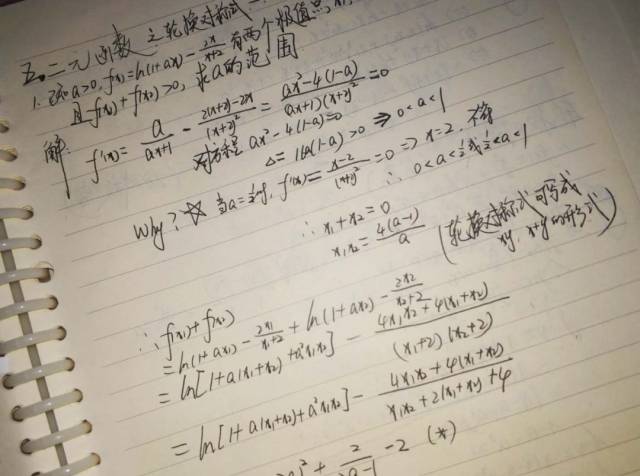 五.二元函数之轮换对称式
1. 已知a>0, f(x)=ln(1+ax)-2x/(x+2)有两个极值点, x₁
且f(x₁)+f(x₂)>0, 求a的范围
解: f'(x)=a/(ax+1)-(2(x+2)-2x)/(x+2)²=(ax²-4(1-a))/((ax+1)(x+2)²)=0
对方程ax²-4(1-a)=0
Δ=16a(1-a)>0 ⇒ 0<a<1
Why? ☆ 当a=1/2时, f'(x)=(x-2)/(x+2)²=0 ⇒ x=2.
∴ 0<a<1/2或1/2<a<1
∴ x₁+x₂=0
x₁x₂=4(a-1)/a
(轮换对称式可写成
xy, x+y的形式)
∴ f(x₁)+f(x₂)
=ln(1+ax₁)-2x₁/(x₁+2)+ln(1+ax₂)-2x₂/(x₂+2)
=ln[1+a(x₁+x₂)+a²x₁x₂]-(4x₁x₂+4(x₁+x₂))/((x₁+2)(x₂+2))
=ln[1+a(x₁+x₂)+a²x₁x₂]-(4x₁x₂+4(x₁+x₂))/(x₁x₂+2(x₁+x₂)+4
)²+2/(2a-1)-2 (*)